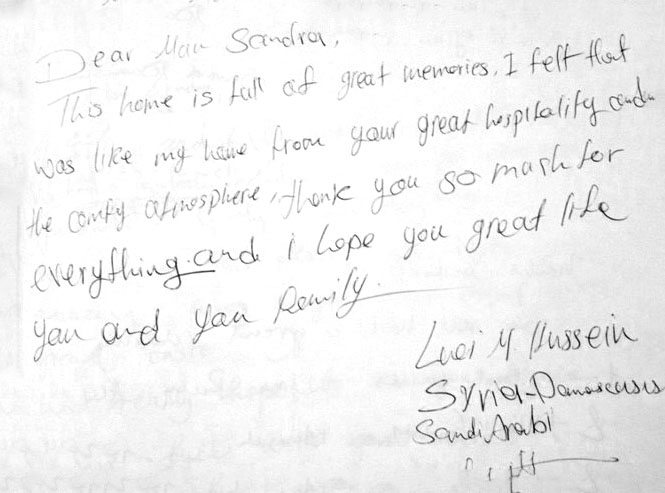 Dear Mam Sandra,
This home is full of great memories. I felt that
was like my home from your great hospitality and
the comfy atmosphere, thank you so mash for
everything and i hope you great life
you and you Family.
Luai M Hussein
Syria-Damascuses
Saudi Arabi